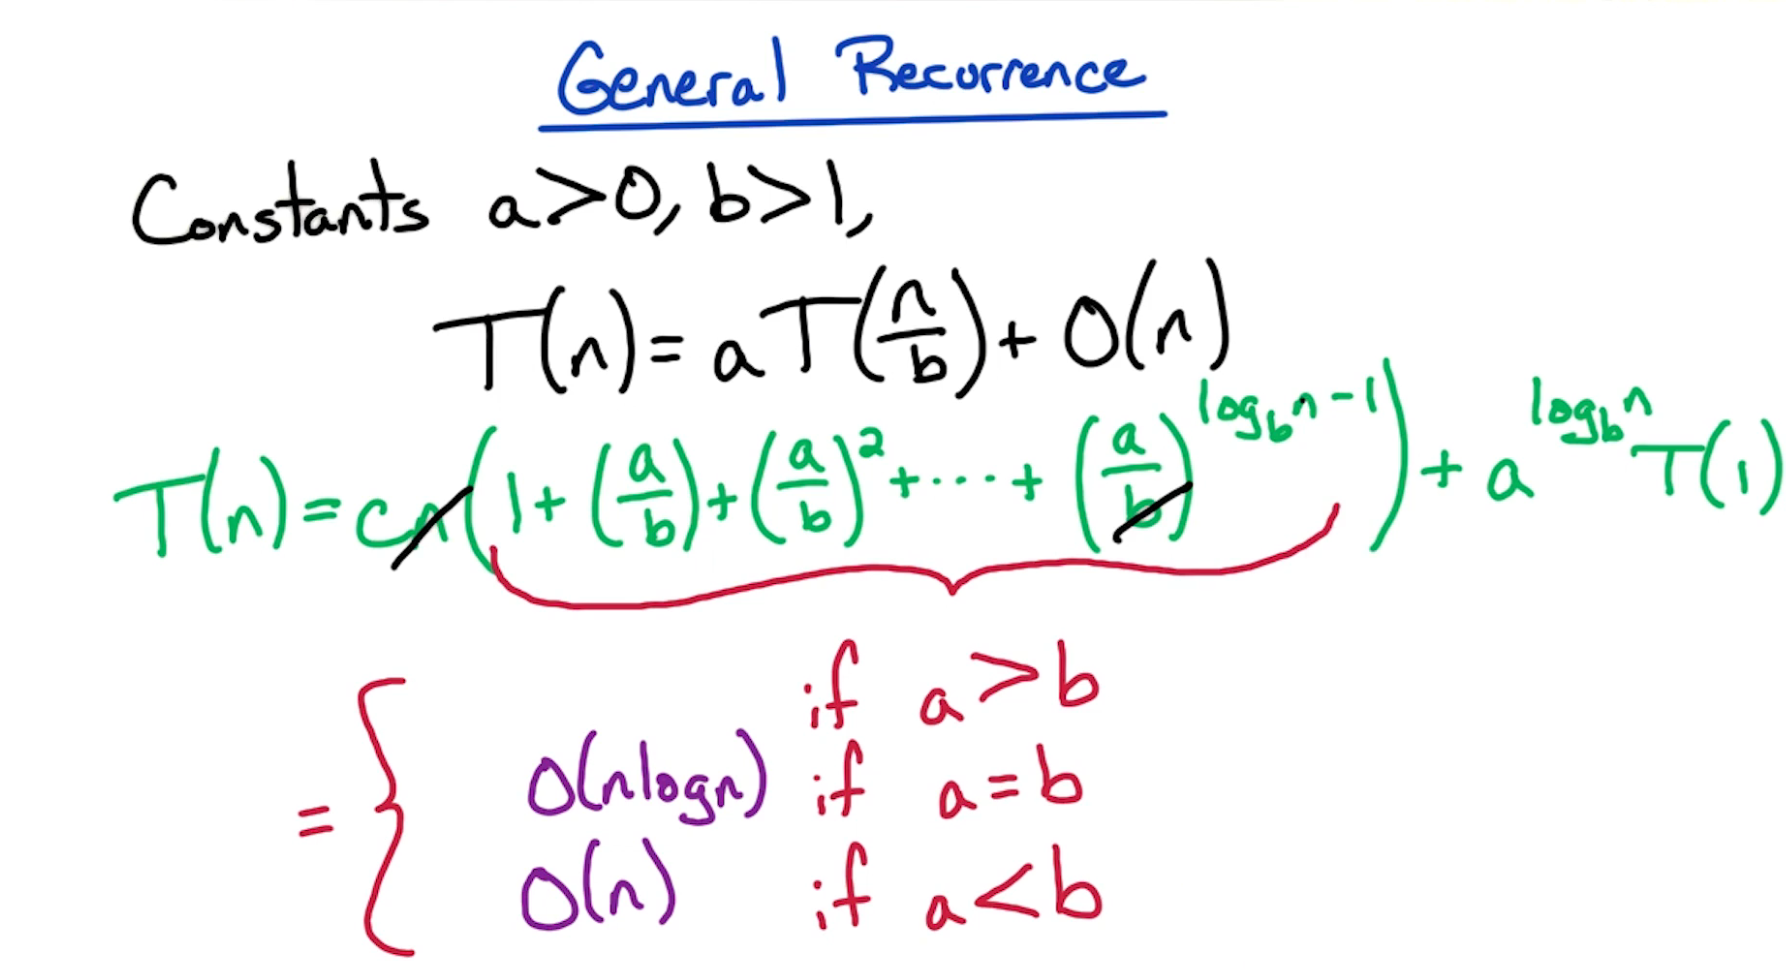 General Recurrence
Constants a>0, b>1,
T(n) = aT(n/b) + O(n)
T(n) = cn(1 + (a/b) + (a/b)^2 + ··· + (a/b)^(log_b n - 1)) + a^(log_b n) T(1)
if a > b
= { O(nlogn) if a = b
O(n) if a < b